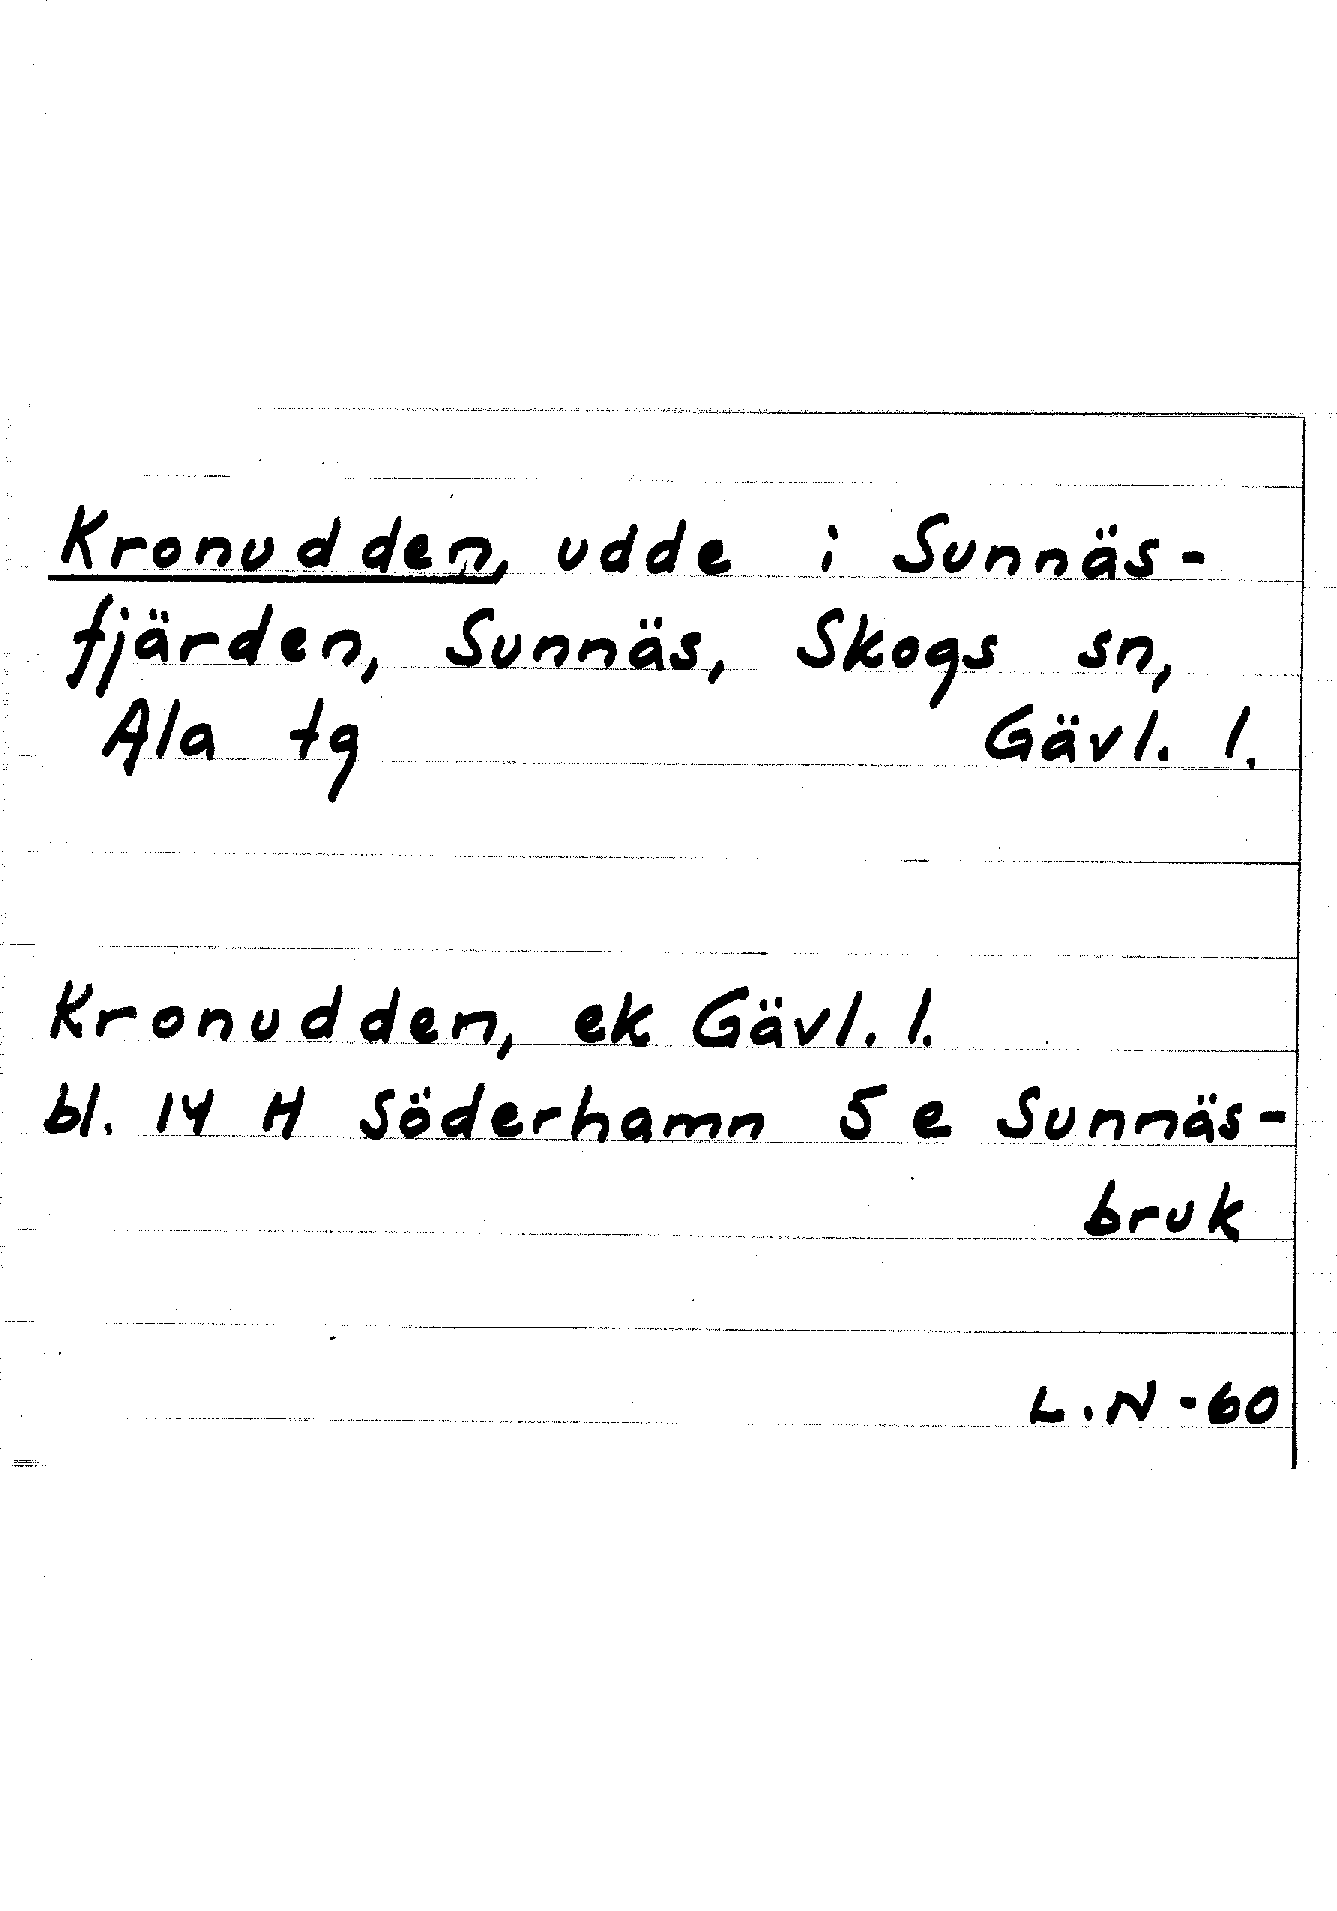 Kronudden, udde i Sunnäs-
fjärden, Sunnäs, Skogs sn,
Ala tg Gävl. l.
Kronudden, ek Gävl. l.
bl. 14 H Söderhamn 5 e Sunnäs-
bruk
L.N -60